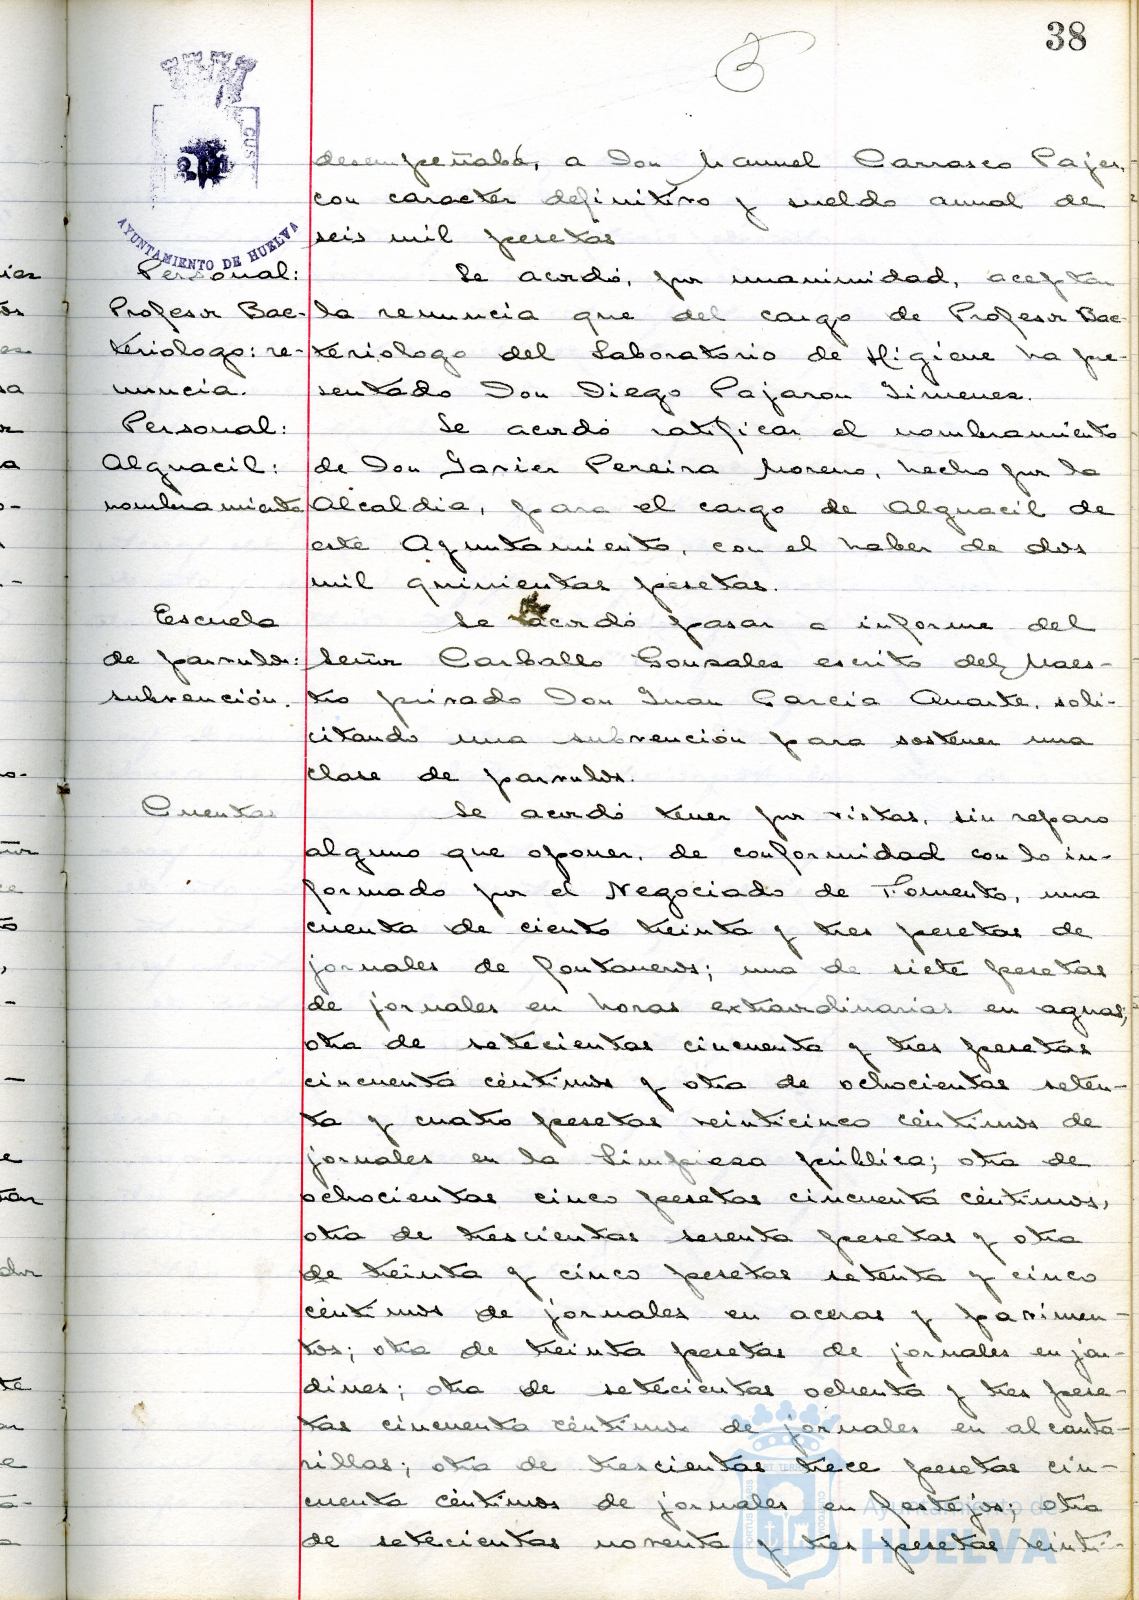 38
AYUNTAMIENTO DE HUELVA
desempeñaba, a Don Manuel Carrasco Pajer,
con caracter definitivo y sueldo anual de
seis mil pesetas
Personal:
Se acordó, por unanimidad, aceptar
Profesor Bac-
la renuncia que del cargo de Profesor Bac-
teriologo: re-
teriologo del Laboratorio de Higiene ha pre-
nuncia.
sentado Don Diego Pajaron Jimenez.
Personal:
Se acordó ratificar el nombramiento
Alguacil:
de Don Javier Pereira Moreno, hecho por la
nombramiento
Alcaldia, para el cargo de Alguacil de
este Ayuntamiento, con el haber de dos
mil quinientas pesetas.
Escuela
Se acordó pasar a informe del
de parvulos:
Señor Carballo Gonzales escrito del Maes-
subvención.
tro privado Don Juan Garcia Quarte, soli-
citando una subvención para sostener una
clase de parvulos.
Cuentas
Se acordó tener por vistas, sin reparo
alguno que oponer, de conformidad con lo in-
formado por el Negociado de Fomento, una
cuenta de ciento treinta y tres pesetas de
jornales de fontaneros; una de siete pesetas
de jornales en horas extraordinarias en aguas;
otra de setecientas cincuenta y tres pesetas
cincuenta céntimos y otra de ochocientas seten-
ta y cuatro pesetas veinticinco céntimos de
jornales en la limpieza pública; otra de
ochocientas cinco pesetas cincuenta céntimos,
otra de trescientas sesenta pesetas y otra
de treinta y cinco pesetas setenta y cinco
céntimos de jornales en aceras y pavimen-
tos; otra de treinta pesetas de jornales en jar-
dines; otra de setecientas ochenta y tres pese-
tas cincuenta céntimos de jornales en alcanta-
rillas; otra de trescientas trece pesetas cin-
cuenta céntimos de jornales en festejos; otra
de setecientas noventa y tres pesetas veinti-
Ayuntamiento de
HUELVA